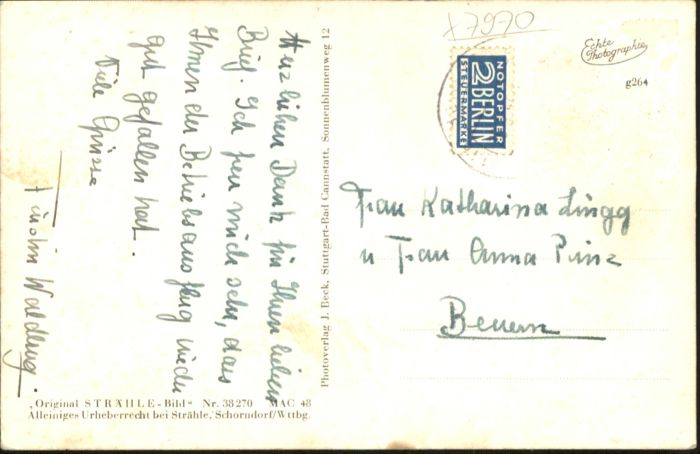 Herzlichen Dank für Ihren lieben
Brief. Ich freu mich sehr, dass
Ihnen der Betriebsausflug wieder
gut gefallen hat.
Viele Grüsse
Fürstin
Photoverlag J. Beck, Stuttgart-Bad Cannstatt, Sonnenblumenweg 12
x7970
NOTOPFER
2 BERLIN
STEUERMARKE
Echte
Photographie
g264
Frau Katharina Lingg
u Frau Anna Prinz
Beuern
„Original STRÄHLE-Bild“ Nr. 38270 MAC 48
Alleiniges Urheberrecht bei Strähle, Schorndorf/Wttbg.